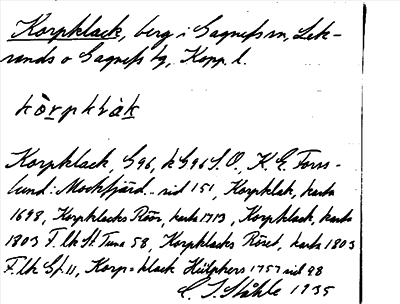 Korpklack, berg i Gagnefs sn, Lek-
sands o Gagnefs tg, Kopp. l.
kòrpklàk
Korpklack G96, k G96 S.O., K. E. Forss-
lund: Mockfjärd. sid 151, Korpklak, karta
1698, Korpklacks Röör, karta 1713, Korpklack, karta
1803 F. lk St. Tuna 58, Korpklacks Röset, karta 1803
F. lk Gf. 11, Korp-klack Hülphers 1757 sid 98
C. I. Ståhle 1935